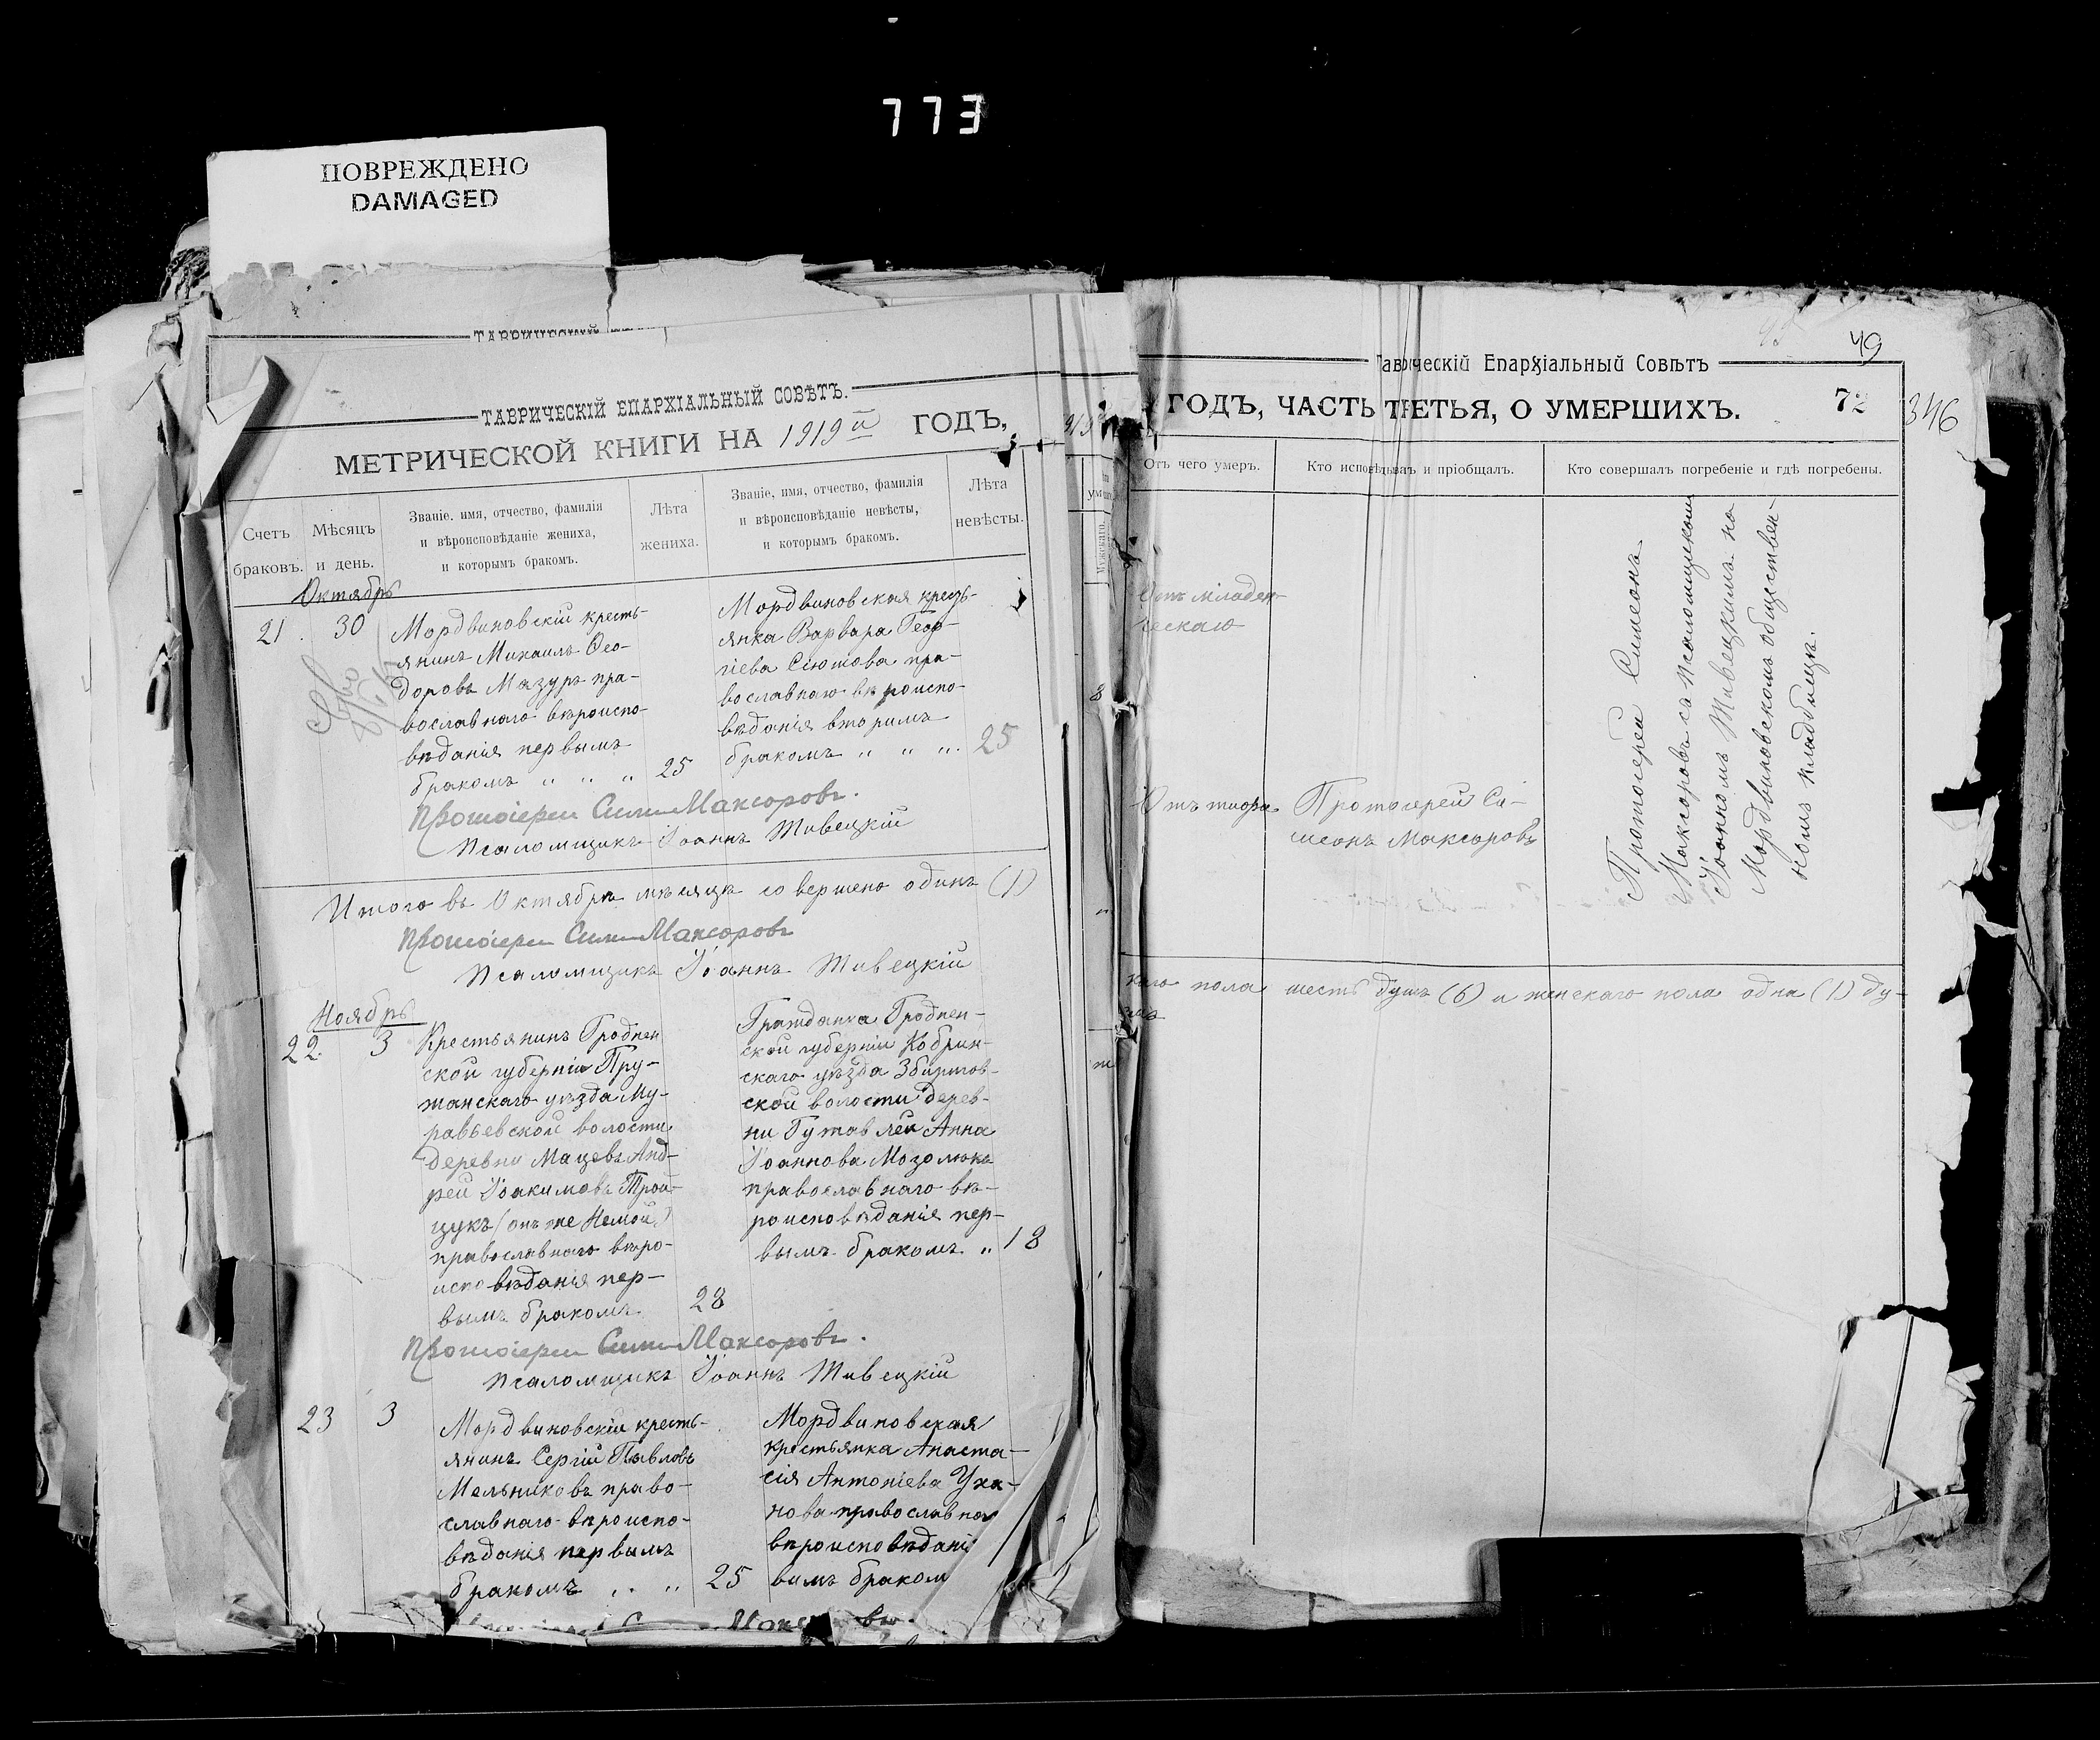 773
ПОВРЕЖДЕНО
DAMAGED
ТАВРИЧЕСКІЙ
ТАВРИЧЕСКІЙ ЕПАРХІАЛЬНЫЙ СОВѢТЪ.
МЕТРИЧЕСКОЙ КНИГИ НА 1919й ГОДЪ,
Счетъ браковъ.
Мѣсяцъ и день.
Званіе, имя, отчество, фамилія
и вѣроисповѣданіе жениха,
и которымъ бракомъ.
Лѣта жениха.
Званіе, имя, отчество, фамилія
и вѣроисповѣданіе невѣсты,
и которымъ бракомъ.
Лѣта невѣсты.
Октябрь
21. 30
Мордвиновскій кресть-
янинъ Михаилъ Ѳео-
доровъ Мазуръ пра-
вославнаго вѣроиспо-
вѣданія первымъ
бракомъ " " " 25
Мордвиновская кресть-
янка Варвара Геор-
гіева Сіютова пра-
вославнаго вѣроиспо-
вѣданія вторымъ
бракомъ " " ". 25
Протоіерей Сим Максоровъ.
Псаломщикъ Іоаннъ Живецкій
Итого въ Октябрѣ мѣсяцѣ совершено одинъ (1)
Протоіерей Сим Максоровъ
Псаломщикъ Іоаннъ Живецкій
Ноябрь
22. 3
Крестьянинъ Гроднен
ской губерніи Пру-
жанскаго уѣзда Му-
равьевской волости
деревни Мацевъ Анд-
рей Іоакимовъ Трои-
цукъ (онъ же Немой)
православнаго вѣро-
исповѣданія пер-
вымъ бракомъ 28
Гражданка Гроднен-
ской губерніи Кобрин-
скаго уѣзда Збиртов-
ской волости дерев-
ни Гутов Анна
Іоаннова Мозолюкъ
православнаго вѣ-
роисповѣданія пер-
вымъ бракомъ " 18
Протоіерей Сим Максоровъ.
Псаломщикъ Іоаннъ Живецкій
23 3
Мордвиновскій кресть-
янинъ Сергій Павловъ
Мельниковъ право-
славнаго вѣроиспо-
вѣданія первымъ
бракомъ . " 25
Мордвиновская
крестьянка Анаста-
сія Антоніева Уха-
нова православна
вѣроисповѣдані
вымъ браком
Мужскаго.
49
Таврическій Епархіальный Совѣтъ
ГОДЪ, ЧАСТЬ ТРЕТЬЯ, О УМЕРШИХЪ. 72
346
Отъ чего умеръ.
Кто исповѣдывалъ и пріобщалъ.
Кто совершалъ погребеніе и гдѣ погребены.
Отъ младен-
ческаго
Отъ тифа
Протоіерей Си-
меонъ Максоровъ
Протоіерей Симеонъ
Максоровъ съ псаломщикомъ
Іоанномъ Живецкимъ на
Мордвиновскомъ обществен-
номъ кладбищѣ.
каго пола шесть душъ (6) и женскаго пола одна (1) ду-
ша